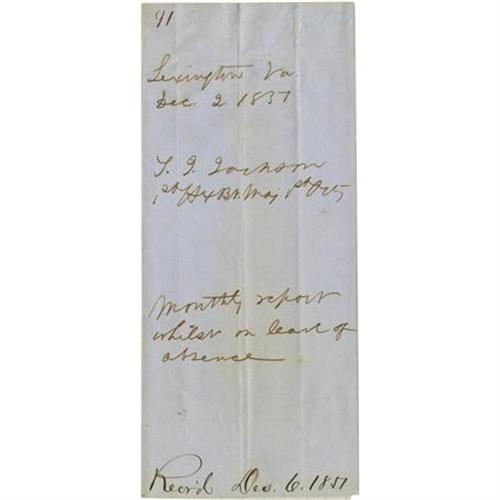 91
Lexington Va
Dec. 2 1851
T. J. Jackson
1st Lt & Bt. Maj 1st Arty
Monthly report
whilst on leave of
absence
Recd Dec. 6. 1851